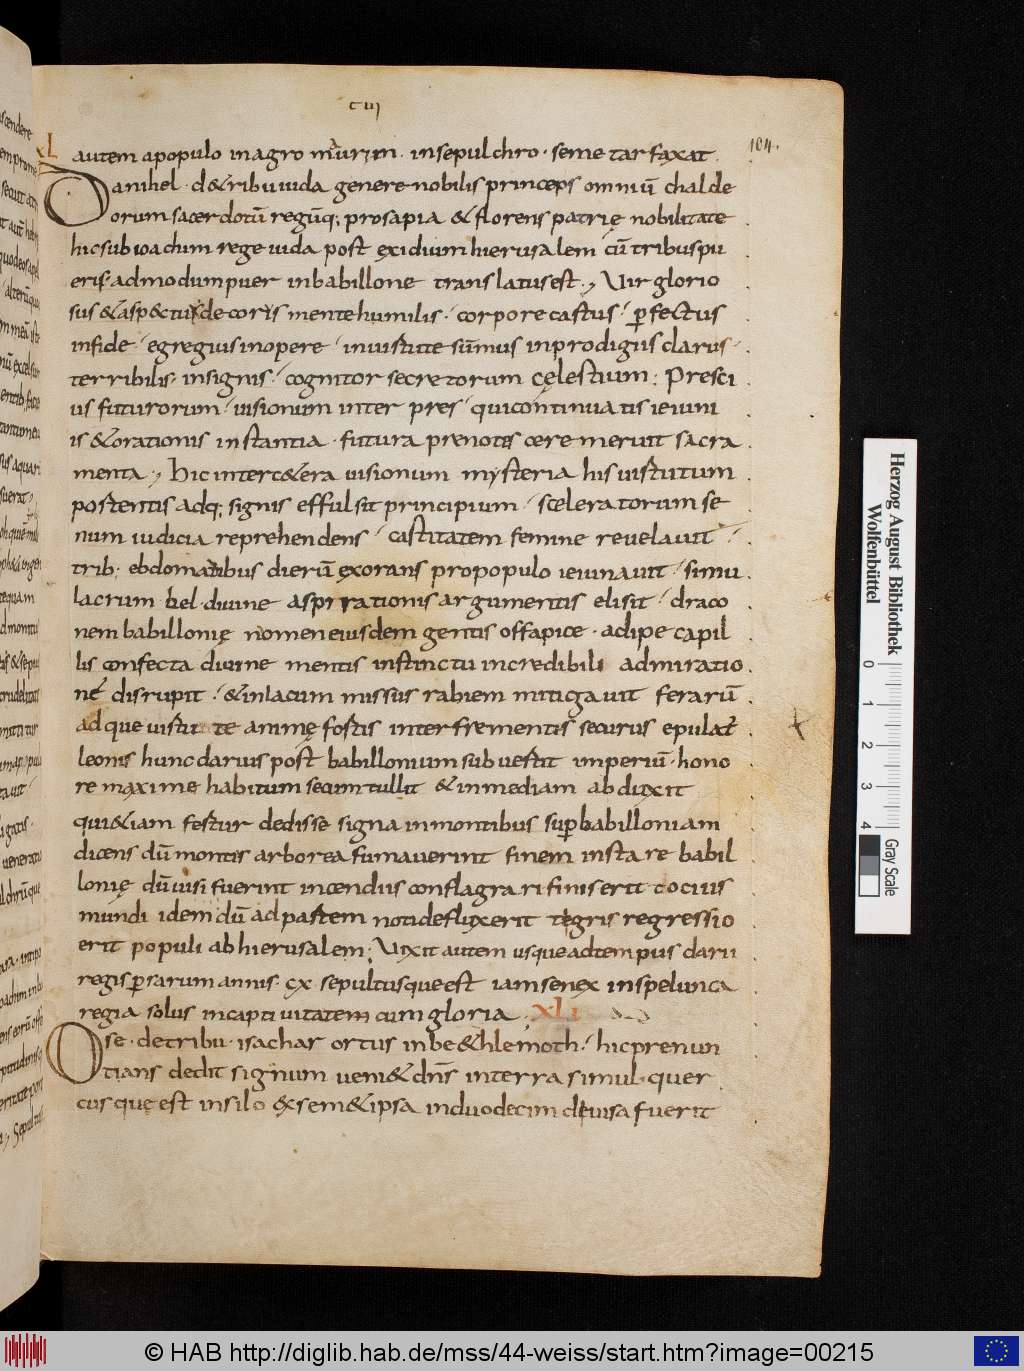 cuii
104.
XL
autem apopulo inagro maurim. insepulchro. seme tarfaxat.
Danihel. d&ribu iuda genere nobilis princeps omniū chalde
orum sacerdotū regūq; prosapia & florens patrię nobilitate
hic sub ioachim rege iuda post excidium hierusalem cū tribus pu
eris. admodum puer inbabillone translatus est. Uir glorio
sus & aspectu decoris mente humilis. corpore castus. perfectus
infide. egregius inopere. inuirtute sūmus inprodigiis clarus.
terribilis. insignis. cognitor secretorum cęlestium; Presci
us futurorum. uisionum inter pres. qui continuatis ieiuni
is & orationis instantia. futura prenoscere meruit sacra
menta, Hic inter c&era uisionum mysteria his uirtutum
portentis adq; signis effulsit principium. sceleratorum se
num iudicia reprehendens. castitatem femine reuelauit.
trib; ebdomatibus dierū exorans propopulo ieiunauit. simu
lacrum bel diuine aspirationis argumentis elisit. draco
nem babillonię nomen eiusdem gentis offa pice. adipe capil
lis confecta diuine mentis instinctu incredibili admiratio
ne disrupit. & inlacum missus rabiem mitigauit ferarū
ad que uirtute animę fortis inter frementis securus epulat
leonis hunc darius post babillonium subuertit imperiū. hono
re maxime habitum secum tullit & in mediam abduxit
qui & iam fertur dedisse signa inmontibus super babilloniam
dicens dū montis arborea fumauerint finem instare babil
lonię dū uisi fuerint incendiis conflagrari finis erit tocius
mundi idem dū ad partem noti defluxerit tigris regressio
erit populi ab hierusalem; Uixit autem usque ad tempus darii
regis persarum annis. cx sepultusque est iam senex inspelunca
regia solus incaptiuitatem cum gloria. XLI
Ose. de tribu. isachar ortus inbe&hlemoth. hic prenun
tians dedit signum ueni& dn̄s interra simul. quer
cus quę est insilo ex sem& ipsa induodecim diuisa fuerit
Herzog August Bibliothek
Wolfenbüttel
0 1 2 3 4
Gray Scale
© HAB http://diglib.hab.de/mss/44-weiss/start.htm?image=00215